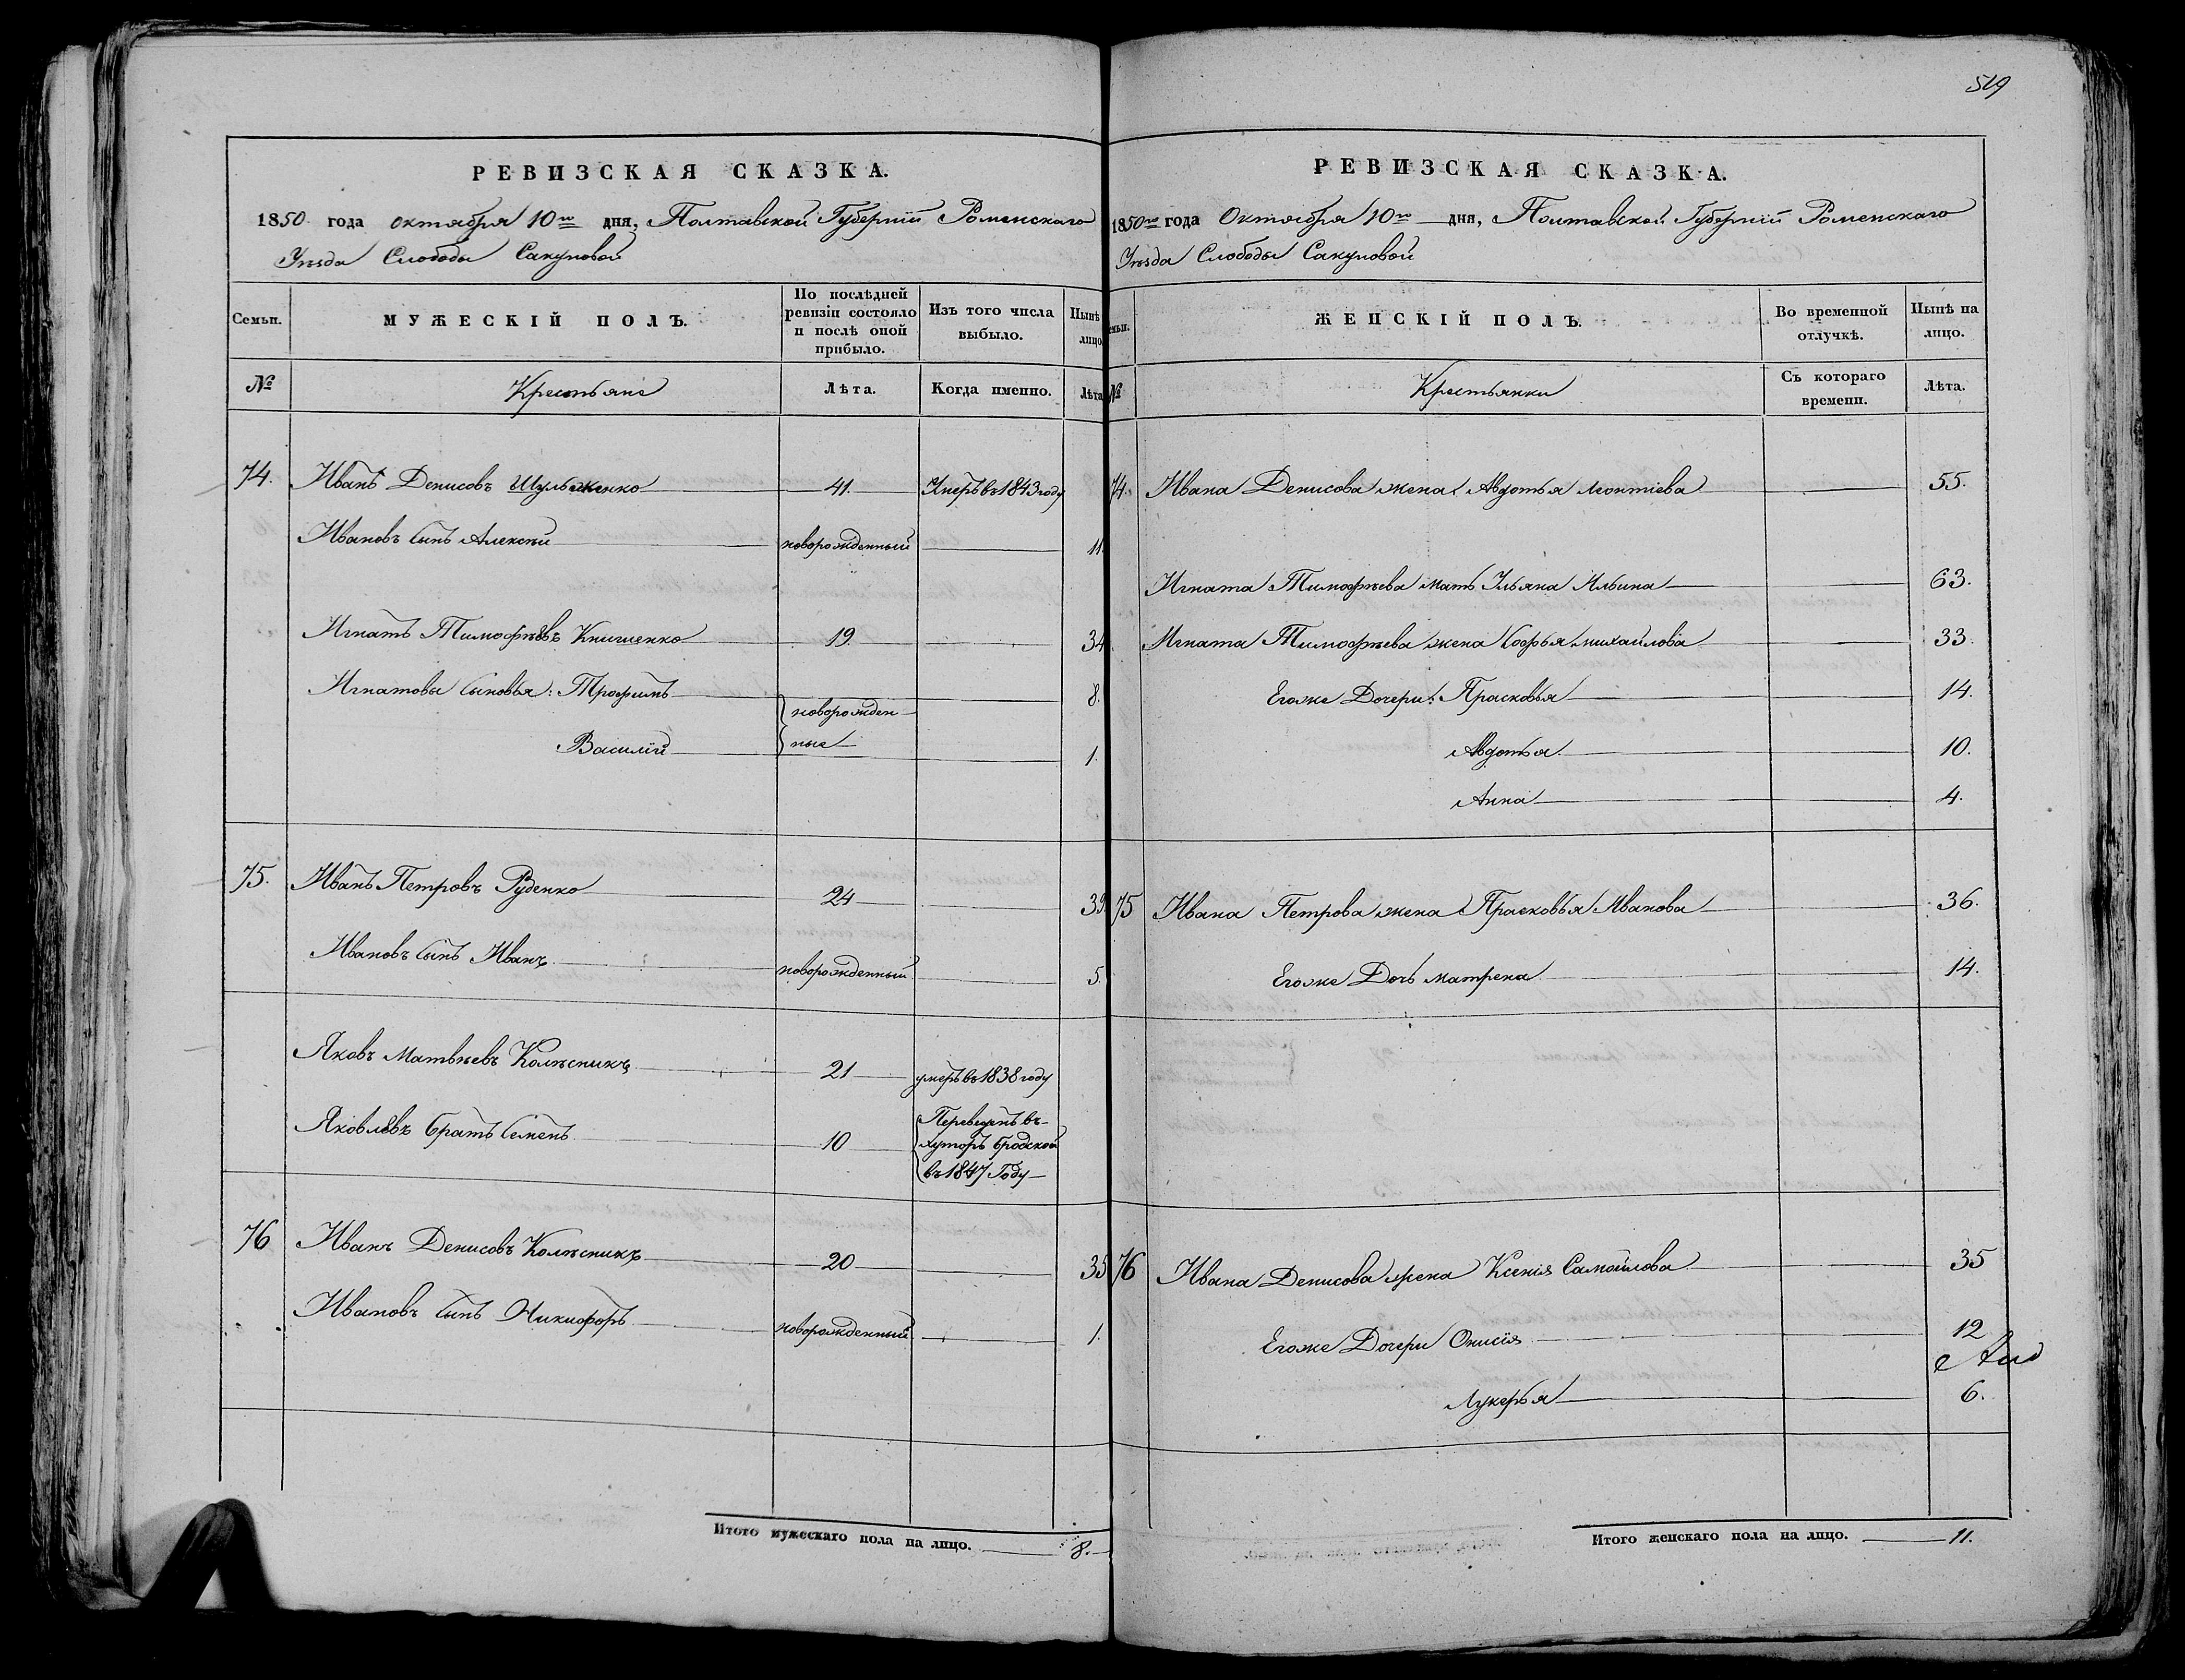 519
РЕВИЗСКАЯ СКАЗКА.
1850 года октября 10го дня, Полтавской Губерніи Роменскаго
Уѣзда Слободы Сакуновой
Семьи.
МУЖЕСКІЙ ПОЛЪ.
По послѣдней
ревизіи состояло
и послѣ оной
прибыло.
Изъ того числа
выбыло.
Нынѣ
лицо
№
Крестьяне
Лѣта.
Когда именно.
Лѣта
74. Иванъ Денисовъ Шульженко 41. Умеръ въ 1843 году
Ивановъ сынъ Алексѣй новорожденный 11.
Игнатъ Тимофѣевъ Книшенко 19. 34
Игнатовы сыновья: Трофимъ 8.
новорожден-
ные
Василій 1.
75. Иванъ Петровъ Руденко 24 39
Ивановъ сынъ Иванъ новорожденный 5.
Яковъ Матвѣевъ Колѣсникъ 21 умеръ въ 1838 году
Яковлевъ братъ Семенъ 10 Переведенъ въ
хуторъ Бродской
въ 1847 Году
76 Иванъ Денисовъ Колѣсникъ 20 35
Ивановъ сынъ Никифоръ новорожденный 1.
Итого мужескаго пола на лицо. 8.
РЕВИЗСКАЯ СКАЗКА.
1850го года Октября 10го дня, Полтавской Губерніи Роменскаго
Уѣзда Слободы Сакуновой
емьи.
ЖЕНСКІЙ ПОЛЪ.
Во временной
отлучкѣ.
Нынѣ на
лицо.
№
Крестьянки
Съ котораго
времени.
Лѣта.
74. Ивана Денисова жена Авдотья Леонтіева 55.
Игната Тимофѣева мать Ульяна Ильина 63.
Игната Тимофѣева жена Софья Михайлова 33.
Егоже Дочери: Прасковья 14.
Авдотья 10.
Анна 4.
75 Ивана Петрова жена Прасковья Иванова 36.
Егоже Дочь Матрена 14.
76 Ивана Денисова жена Ксенія Самойлова 35
Егоже Дочери Онисія 12
Лукерья 6.
Итого женскаго пола на лицо. 11.